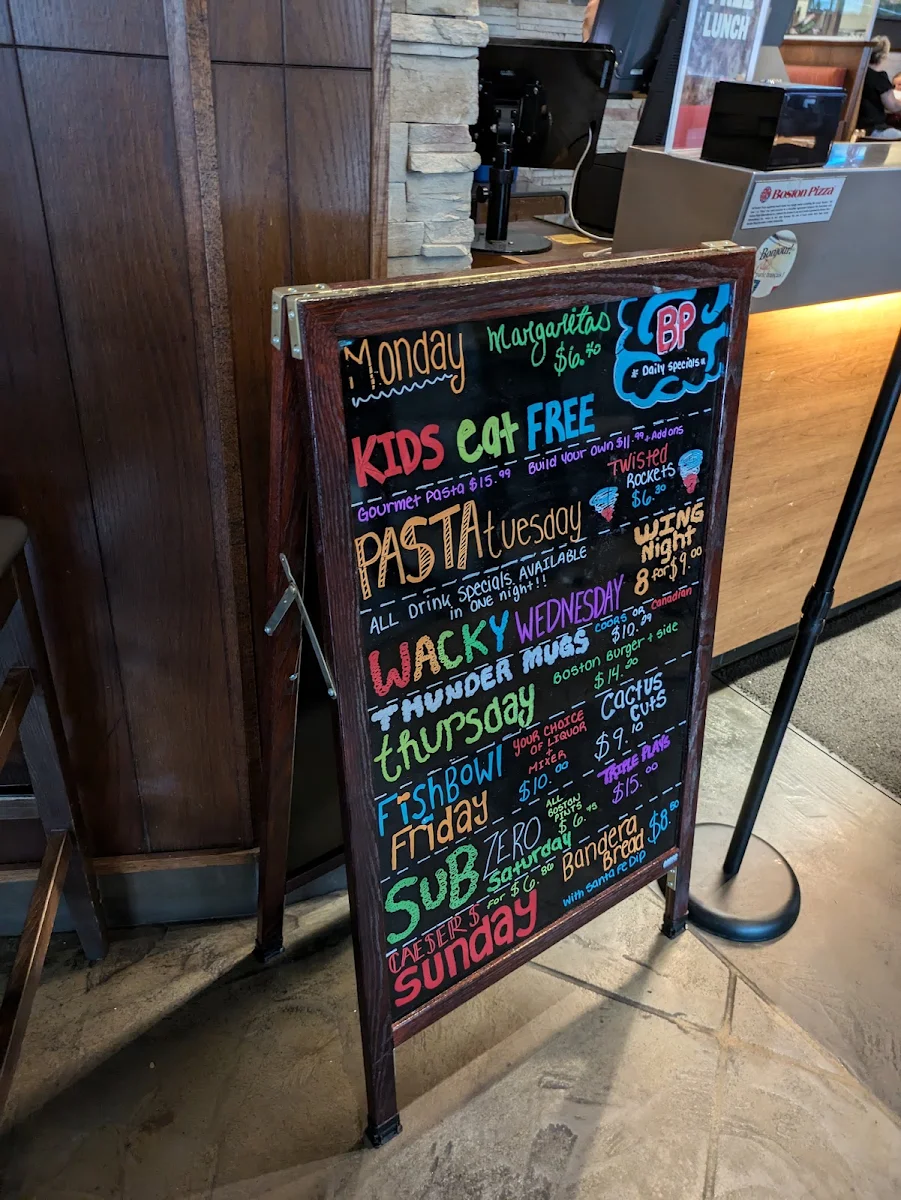 FREE
LUNCH
Boston Pizza
Bonjour!
Monday
Margaritas
$6.40
BP
Daily Specials
KIDS eat FREE
Gourmet Pasta $15.99
Build Your Own $11.99 + Add ons
PASTA tuesday
Twisted
Rockets
$6.30
ALL Drink Specials AVAILABLE
in ONE night!!
WING
Night
8 for $9.00
WACKY WEDNESDAY
THUNDER MUGS
COORS OR Canadian
$10.29
thursday
Boston Burger + side
$14.00
FishBowl
Friday
YOUR CHOICE
OF LIQUOR
+
MIXER
$10.00
Cactus
Cuts
$9.10
TRIPLE PLAYS
$15.00
SUB ZERO
Saturday
for $6.80
ALL
BOSTON
PINTS
$6.45
Bandera
Bread $8.50
with Santa Fe Dip
CAESERS
sunday